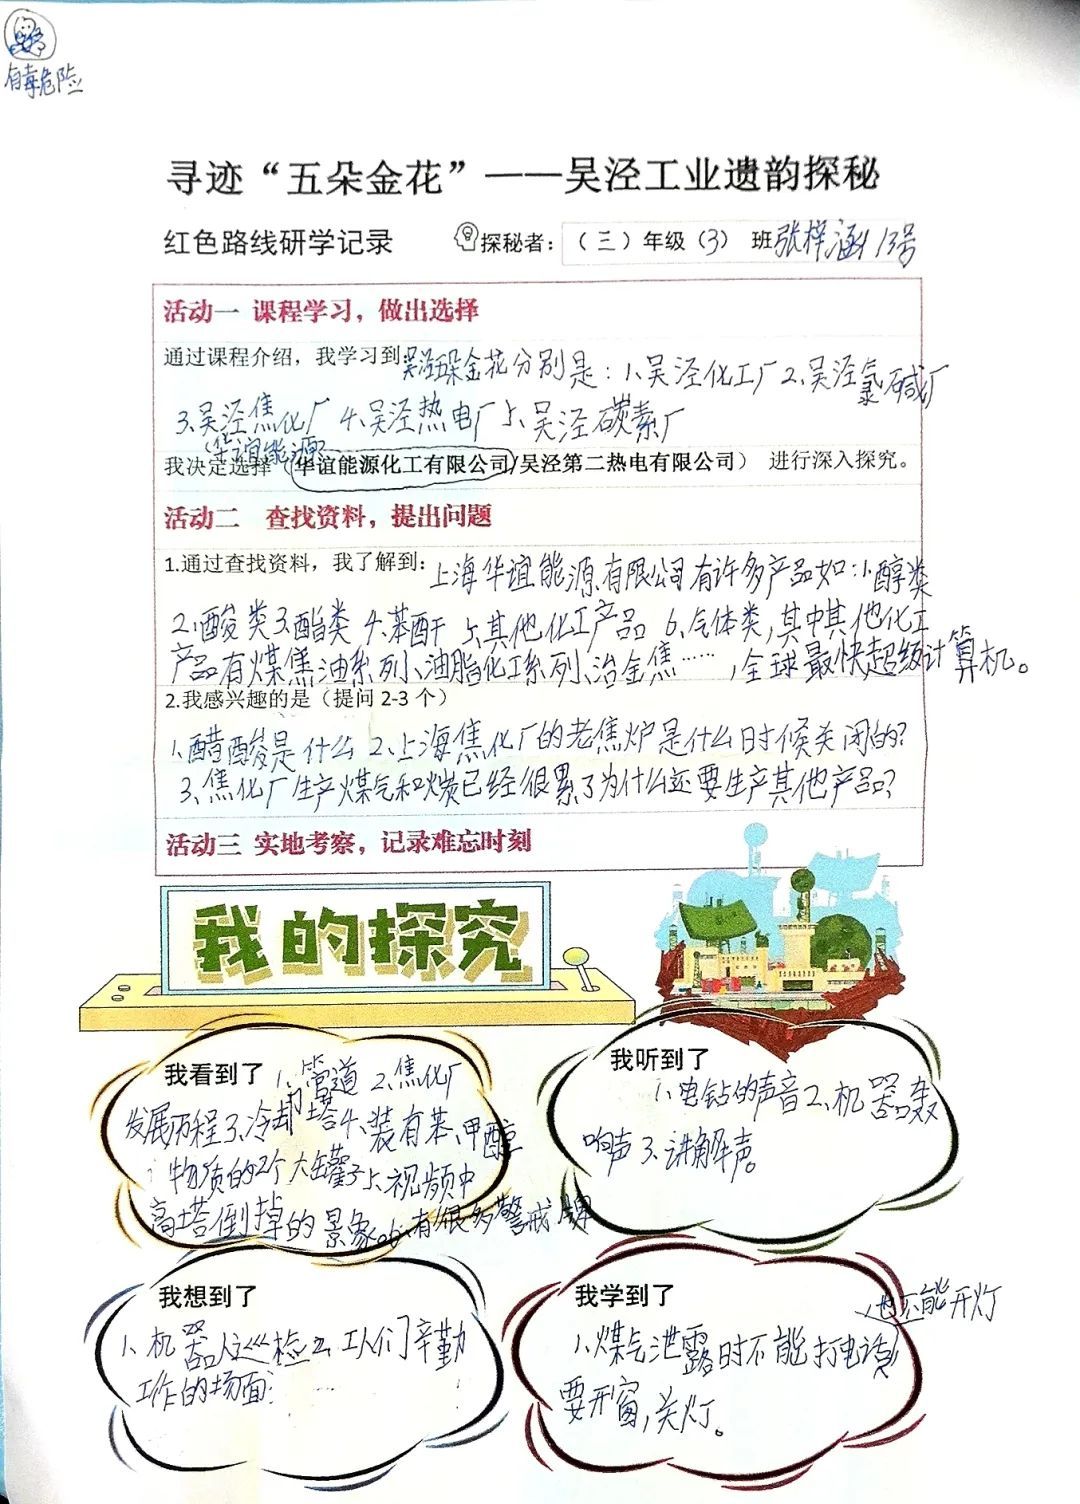 有毒危险
寻迹“五朵金花”——吴泾工业遗韵探秘
红色路线研学记录 探秘者：（三）年级（3） 班张梓涵13号
活动一 课程学习，做出选择
通过课程介绍，我学习到吴泾五朵金花分别是：1、吴泾化工厂2、吴泾氯碱厂
3、吴泾焦化厂 4、吴泾热电厂 5、吴泾碳素厂
（华谊能源）
我决定选择（华谊能源化工有限公司/吴泾第二热电有限公司） 进行深入探究。
活动二 查找资料，提出问题
1.通过查找资料，我了解到：上海华谊能源有限公司有许多产品如：1、醇类
2、酸类3、酯类 4、苯酐 5、其他化工产品 6、气体类，其中其他化工
产品有煤焦油系列、油脂化工系列、冶金焦……，全球最快超级计算机。
2.我感兴趣的是（提问 2-3 个）
1、醋酸是什么 2、上海焦化厂的老焦炉是什么时候关闭的？
3、焦化厂生产煤气和炭已经很累了为什么还要生产其他产品？
活动三 实地考察，记录难忘时刻
我的探究
我看到了 1、管道 2、焦化厂
发展历程3、冷却塔4、装有苯、甲醇
物质的2个大罐子5、视频中
高塔倒掉的景象6、有很多警戒牌
我听到了
1、电钻的声音2、机器轰
响声 3、讲解声。
我想到了
1、机器人巡检2、工人们辛勤
工作的场面
我学到了
，也不能开灯
1、煤气泄露时不能打电话
要开窗，关灯。